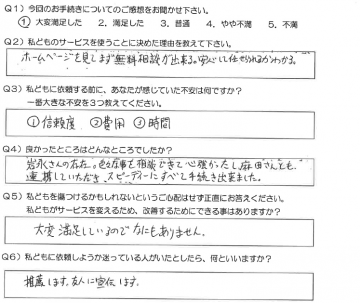 Q1）今回のお手続きについてのご感想をお聞かせ下さい。
① 大変満足した　2、満足した　3、普通　4、やや不満　5、不満
Q2）私どものサービスを使うことに決めた理由を教えて下さい。
ホームページを見てまず無料相談が出来る。安心して任せられるがわかる。
Q3）私どもに依頼する前に、あなたが感じていた不安は何ですか？
一番大きな不安を3つ教えてください。
①信頼度　②費用　③時間
Q4）良かったところはどんなところでしたか？
岩永さんの存在。色々な事を相談できて心強かったし麻田さんとも、
連携していただき、スピーディーにすべて手続き出来ました。
Q5）私どもを傷つけるかもしれないというご心配はせず正直にお答えください。
私どもがサービスを変えるため、改善するためにできる事はありますか？
大変満足しているので何にもありません。
Q6）私どもに依頼しようか迷っている人がいたとしたら、何といいますか？
推薦します。友人に宣伝します。